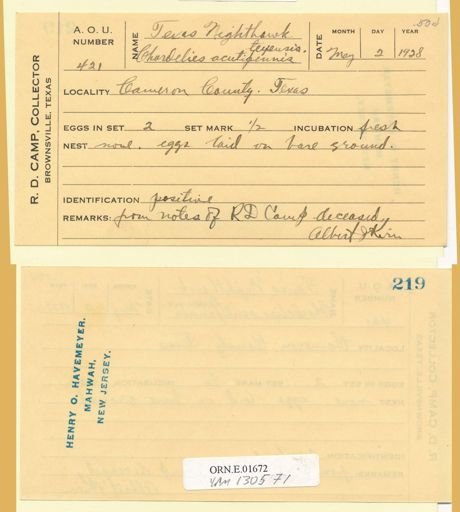 219
500
A. O. U. NUMBER 421
NAME Texas Nighthawk
Chordeiles acutipennis texensis.
DATE MONTH May DAY 2 YEAR 1928
LOCALITY Cameron County. Texas
EGGS IN SET 2 SET MARK 1/2 INCUBATION fresh
NEST none. eggs laid on bare ground.
IDENTIFICATION positive
REMARKS: from notes of R D Camp deceased,
Albert J Kirn
R. D. CAMP, COLLECTOR
BROWNSVILLE, TEXAS
219
HENRY O. HAVEMEYER.
MAHWAH,
NEW JERSEY.
ORN.E.01672
YPM 130571